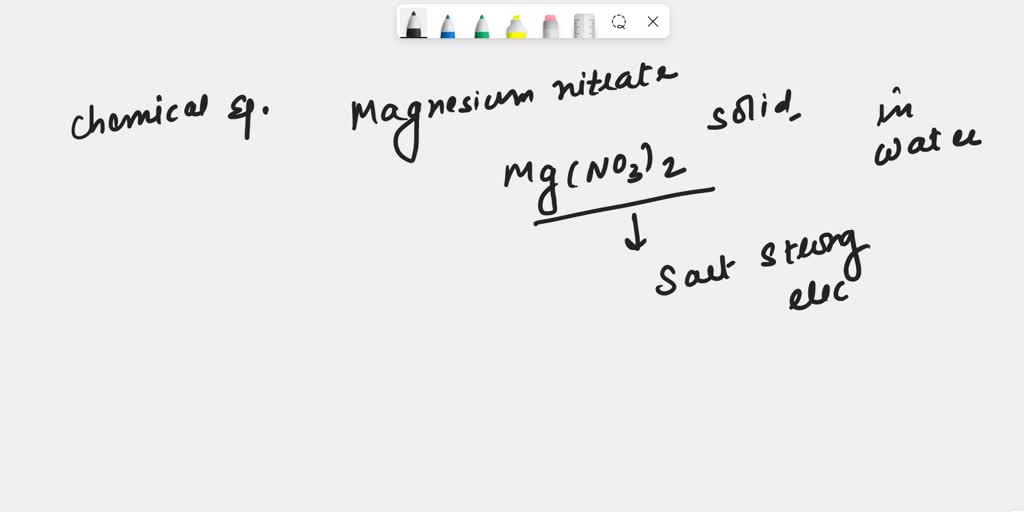 Chemical Eq. Magnesium nitrate solid in
water
Mg(NO3)2
↓
Salt strong
elec